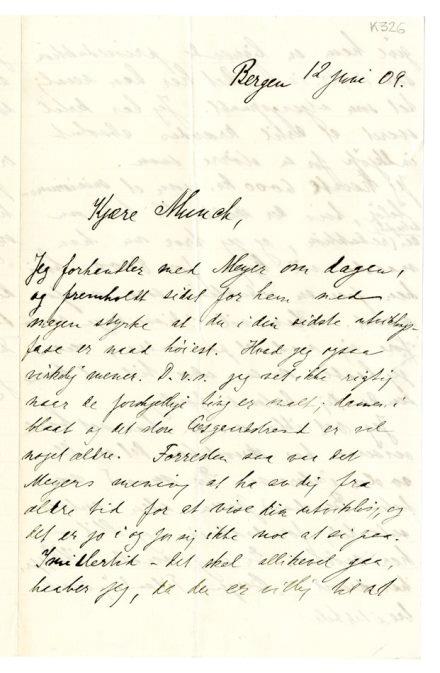 K326
Bergen 12 juni 09.
Kjære Munch,
Jeg forhandler med Meyer om dagen,
og fremholdt sidst for hem med
megen styrke at du i din sidste utviklings-
fase er naad høiest. Hvad jeg ogsaa
virkelig mener. D.v.s. jeg vet ikke rigtig
naar de forskjellige ting er malt; damen i
blaat og det store er vel
noget ældre. Forresten saa var det
Meyers mening at ha en dig fra
ældre tid for at vise din utvikling, og
det er jo i og for sig ikke noe at si paa.
Imidlertid – det skal allikevel gaa,
haaber jeg, da du er villig til at